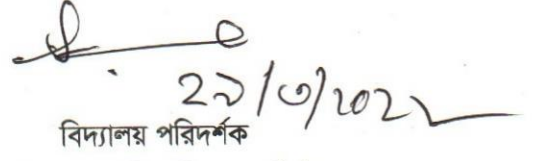 ২৯/৩/২০২২
বিদ্যালয় পরিদর্শক